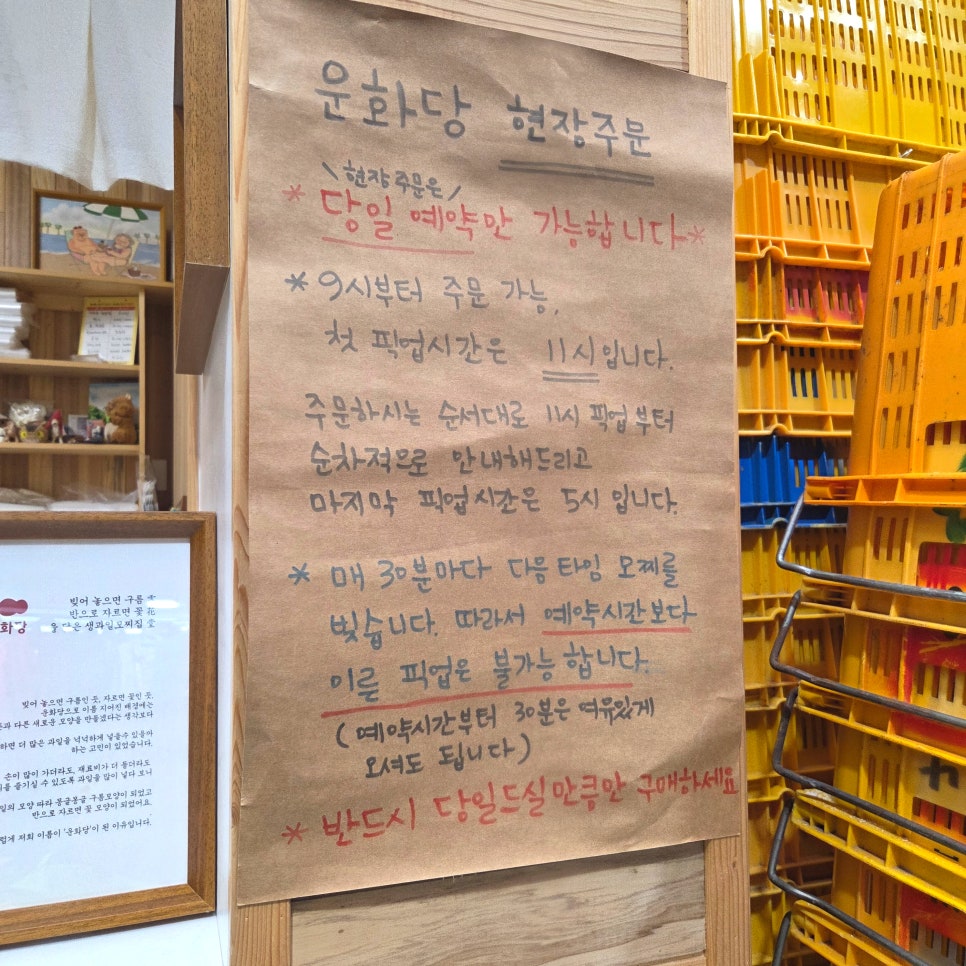 운화당 현장주문
\현장주문은/
* 당일 예약만 가능합니다 *
* 9시부터 주문 가능,
첫 픽업시간은 11시입니다.
주문하시는 순서대로 11시 픽업부터
순차적으로 안내해드리고
마지막 픽업시간은 5시 입니다.
* 매 30분마다 다음타임 모찌를
빚습니다. 따라서 예약시간보다
이른 픽업은 불가능합니다.
(예약시간부터 30분은 여유있게
오셔도 됩니다)
* 반드시 당일드실만큼만 구매하세요
화당
빚어 놓으면 구름 雲
반으로 자르면 꽃 花
을 담은 생과일모찌집 堂
빚어 놓으면 구름인 듯, 자르면 꽃인 듯.
운화당으로 이름 지어진 배경에는
다른 새로운 모양을 만들겠다는 생각보다
하면 더 많은 과일을 넉넉하게 넣을수 있을까
하는 고민이 있었습니다.
손이 많이 가더라도, 재료비가 더 들더라도
를 즐기실 수 있도록 과일을 많이 넣다 보니
일의 모양 따라 몽글몽글 구름모양이 되었고
반으로 자르면 꽃 모양이 되었어요.
렇게 저희 이름이 '운화당'이 된 이유입니다.